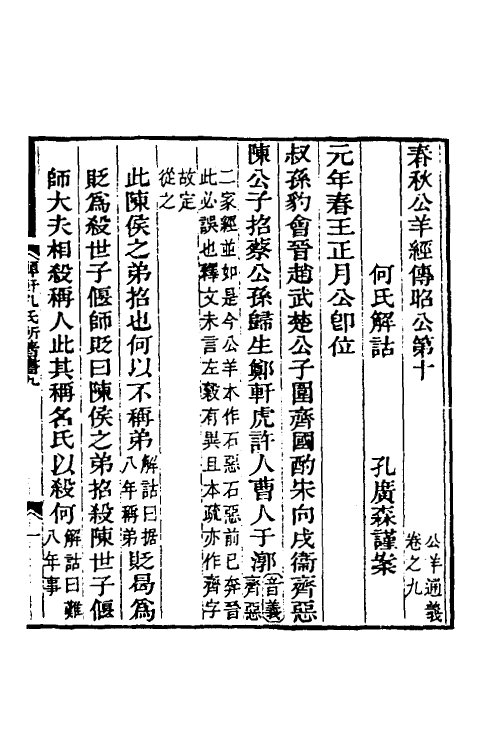 春秋公羊經傳昭公第十
公羊通義
卷之九
何氏解詁
孔廣森謹案
元年春王正月公卽位
叔孫豹會晉趙武楚公子圍齊國酌宋向戌衞齊惡
陳公子招蔡公孫歸生鄭軒虎許人曹人于漷
音義
齊惡
二家經並如是今公羊本作石惡石惡前已奔晉
此必誤也釋文未言左穀有異且本疏亦作齊字
故定
從之
此陳侯之弟招也何以不稱弟
解詁曰据
八年稱弟
貶曷爲
貶爲殺世子偃師貶曰陳侯之弟招殺陳世子偃
師大夫相殺稱人此其稱名氏以殺何
解詁曰難
八年事
軒孔氏所著書九
一